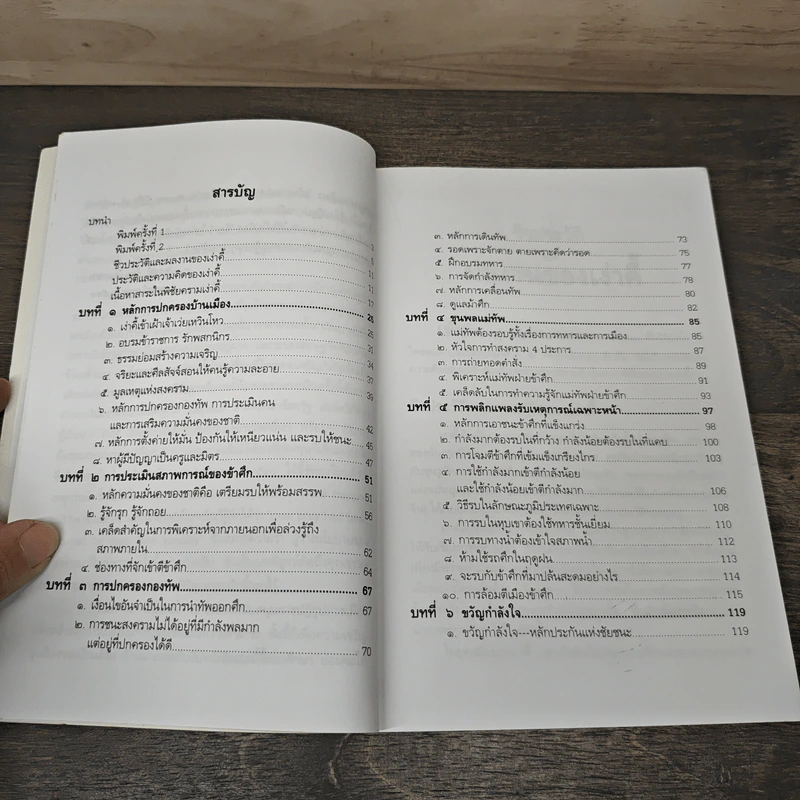 สารบัญ
บทนำ
พิมพ์ครั้งที่ 1
พิมพ์ครั้งที่ 2
ชีวประวัติและผลงานของเง่าคี้
ประวัติและความคิดของเง่าคี้ 11
เนื้อหาสาระในพิชัยครามเง่าคี้ 17
บทที่ ๑ หลักการปกครองบ้านเมือง 25
๑. เง่าคี้เข้าเฝ้าเจ้าเว่ยเหวินโหว 25
๒. อบรมข้าราชการ รักพสกนิกร 31
๓. ธรรมย่อมสร้างความเจริญ 34
๔. จริยะและศีลสัจจ์สอนให้คนรู้ความละอาย 37
๕. มูลเหตุแห่งสงคราม 39
๖. หลักการปกครองกองทัพ การประเมินคน
และการเสริมความมั่นคงของชาติ 42
๗. หลักการตั้งค่ายให้มั่น ป้องกันให้เหนียวแน่น และรบให้ชนะ 45
๘. หาผู้มีปัญญาเป็นครูและมิตร 47
บทที่ ๒ การประเมินสภาพการณ์ของข้าศึก 51
๑. หลักความมั่นคงของชาติคือ เตรียมรบให้พร้อมสรรพ 51
๒. รู้จักรุก รู้จักถอย 56
๓. เคล็ดสำคัญในการพิเคราะห์จากภายนอกเพื่อล่วงรู้ถึง
สภาพภายใน 62
๔. ช่องทางที่จักเข้าตีข้าศึก 64
บทที่ ๓ การปกครองกองทัพ 67
๑. เงื่อนไขอันจำเป็นในการนำทัพออกศึก 67
๒. การชนะสงครามไม่ได้อยู่ที่มีกำลังพลมาก
แต่อยู่ที่ปกครองได้ดี 70
๓. หลักการเดินทัพ 73
๔. รอดเพราะจักตาย ตายเพราะคิดว่ารอด 75
๕. ฝึกอบรมทหาร 77
๖. การจัดกำลังทหาร 78
๗. หลักการเคลื่อนทัพ 80
๘. ดูแลม้าศึก 82
บทที่ ๔ ขุนพลแม่ทัพ 85
๑. แม่ทัพต้องรอบรู้ทั้งเรื่องการทหารและการเมือง 85
๒. หัวใจการทำสงคราม 4 ประการ 87
๓. การถ่ายทอดคำสั่ง 89
๔. พิเคราะห์แม่ทัพฝ่ายข้าศึก 91
๕. เคล็ดลับในการทำความรู้จักแม่ทัพฝ่ายข้าศึก 93
บทที่ ๕ การพลิกแพลงรับเหตุการณ์เฉพาะหน้า 97
๑. หลักการเอาชนะข้าศึกที่แข็งแกร่ง 98
๒. กำลังมากต้องรบในที่กว้าง กำลังน้อยต้องรบในที่แคบ 100
๓. การโจมตีข้าศึกที่เข้มแข็งเกรียงไกร 103
๔. การใช้กำลังมากเข้าตีกำลังน้อย
และใช้กำลังน้อยเข้าตีกำลังมาก 106
๕. วิธีรบในลักษณะภูมิประเทศเฉพาะ 108
๖. การรบในหุบเขาต้องใช้ทหารชั้นเยี่ยม 110
๗. การรบทางน้ำต้องเข้าใจสภาพน้ำ 112
๘. ห้ามใช้รถศึกในฤดูฝน 113
๙. จะรบกับข้าศึกที่มาปล้นสะดมอย่างไร 114
๑๐. การล้อมตีเมืองข้าศึก 115
บทที่ ๖ ขวัญกำลังใจ 119
๑. ขวัญกำลังใจ---หลักประกันแห่งชัยชนะ 119